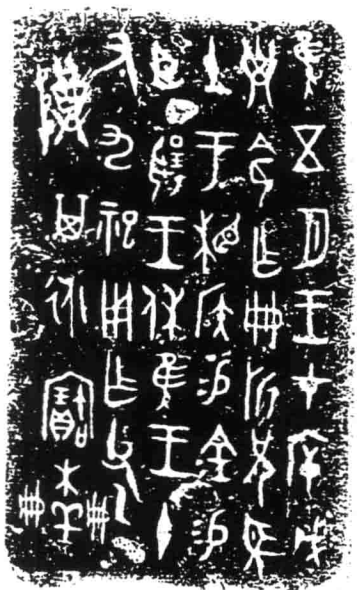 隹五月王才厈戊
子令乍册折兄望
土于相𥎦易金易
臣揚王休隹王十
又九祀用乍父乙
尊其永寶木羊册